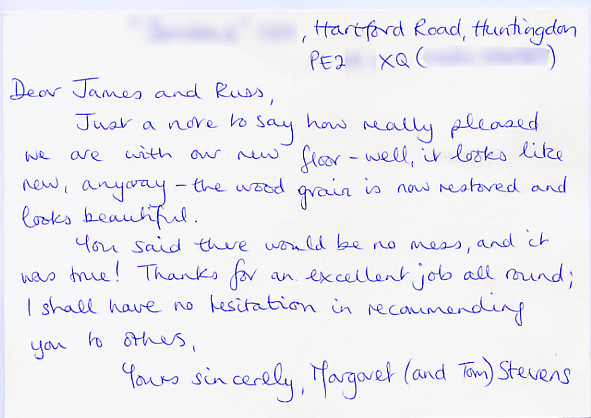 , Hartford Road, Huntingdon
PE2 XQ ( )
Dear James and Russ,
Just a note to say how really pleased
we are with our new floor - well, it looks like
new, anyway - the wood grain is now restored and
looks beautiful.
You said there would be no mess, and it
was true! Thanks for an excellent job all round;
I shall have no hesitation in recommending
you to others,
Yours sincerely, Margaret (and Tom) Stevens